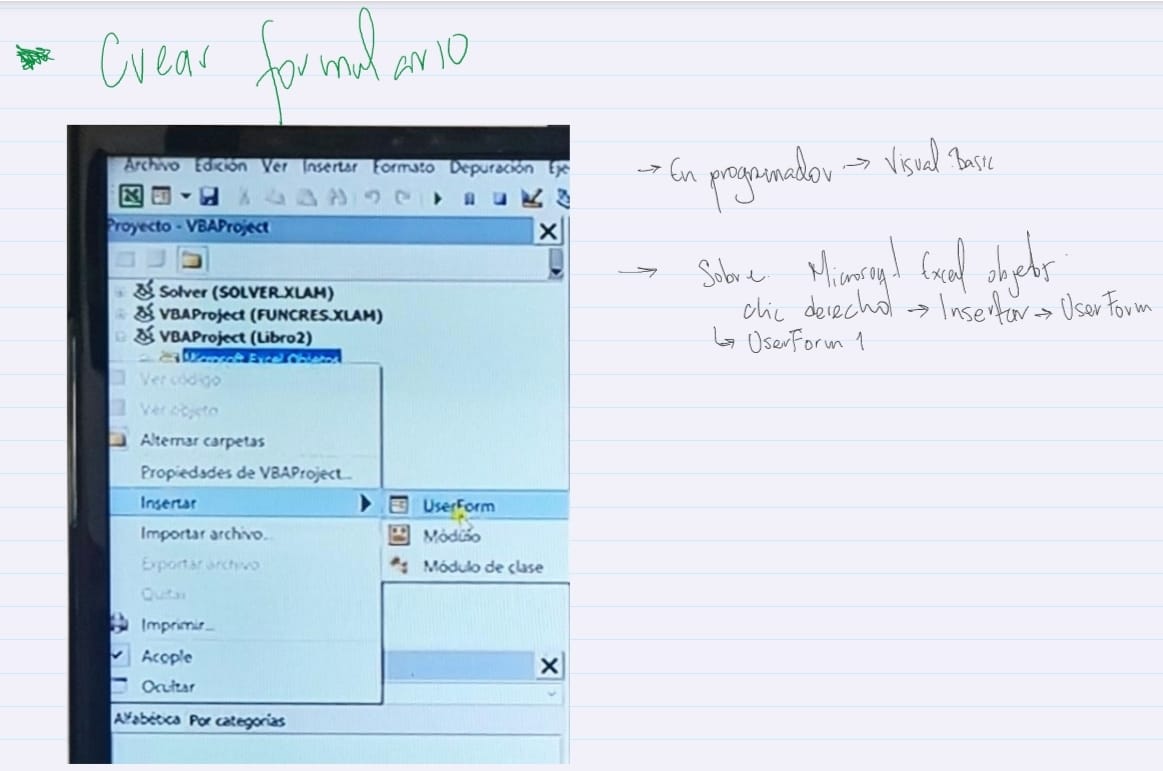 Crear formulario
Archivo Edición Ver Insertar Formato Depuración Eje
Proyecto - VBAProject
Solver (SOLVER.XLAM)
VBAProject (FUNCRES.XLAM)
VBAProject (Libro2)
Microsoft Excel Objetos
Ver código
Ver objeto
Alternar carpetas
Propiedades de VBAProject...
Insertar
UserForm
Importar archivo...
Módulo
Exportar archivo
Módulo de clase
Quitar
Imprimir...
Acople
Ocultar
Alfabética Por categorías
→ En programador → Visual Basic
→ Sobre Microsoft Excel objetos
clic derecho → Insertar → UserForm
↳ UserForm 1